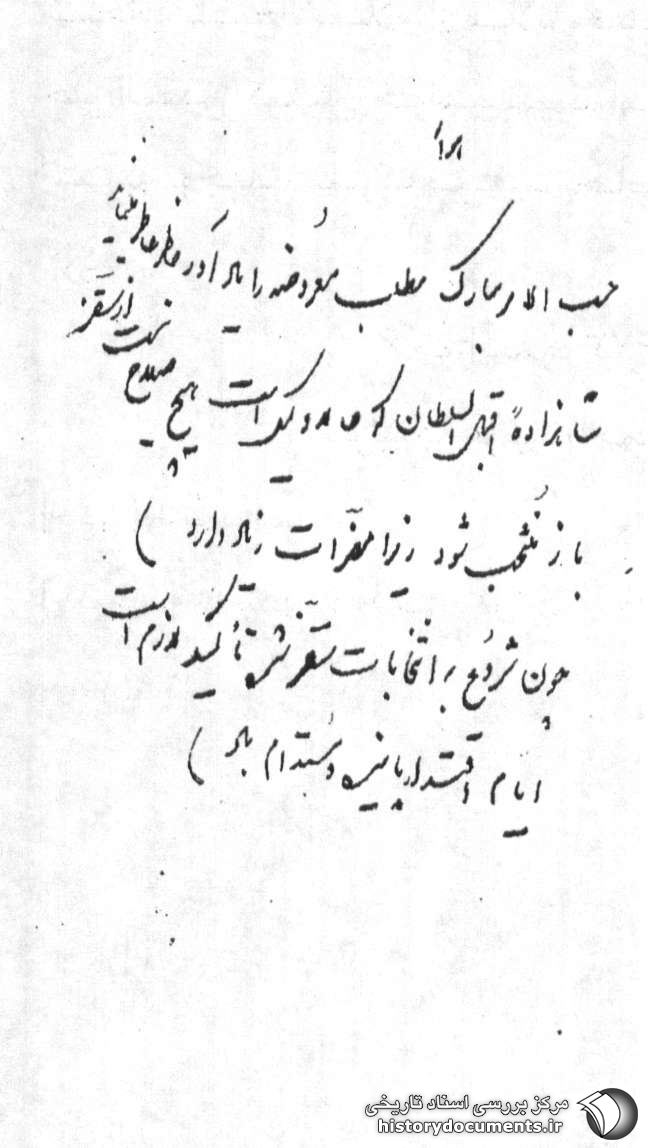 حسب الامر مبارک مطلب معروضه را یاد آور خاطر
شاهزاده اقبال السلطان که وکیل است هیچ صلاح نیست از سقز
باز منتخب شود زیرا مضرات زیاد دارد )
چون شروع بر انتخابات سقز شده تأکید لازم است
ایام اقتدار پاینده و مستدام باد )
مرکز بررسی اسناد تاریخی
historydocuments.ir